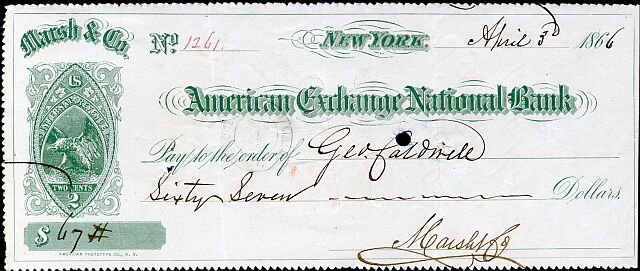 Marsh & Co.
No. 1261.
NEW YORK. April 3d 1866
U.S.
INTER. REV.
American Exchange National Bank
Pay to the order of Geo. Caldwell
Sixty Seven Dollars.
TWO CENTS
2
$ 67 #
Marsh & Co
AMERICAN PHOTOTYPE CO., N.Y.